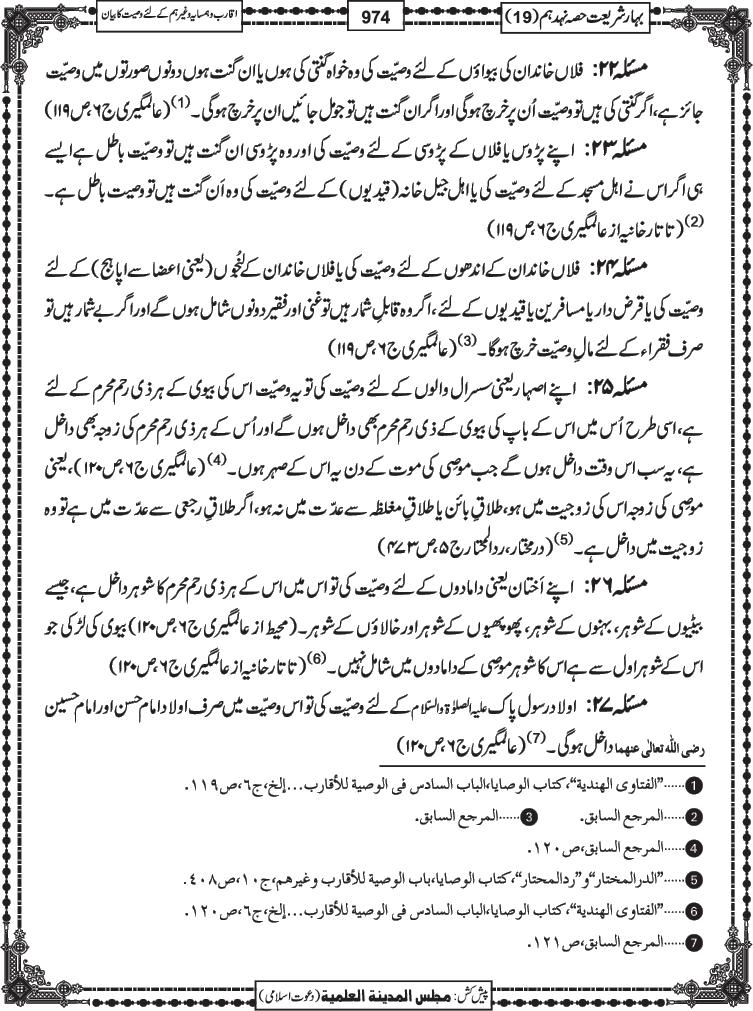 بہار شریعت حصہ نہد ہم (19)
974
اقارب و ہمسایہ وغیر ہم کے لئے وصیت کا بیان
مسئلہ ۲۲: فلاں خاندان کی بیواؤں کے لئے وصیّت کی وہ خواہ گنتی کی ہوں یا ان گنت ہوں دونوں صورتوں میں وصیّت
جائز ہے، اگر گنتی کی ہیں تو وصیّت اُن پر خرچ ہوگی اور اگر ان گنت ہیں تو جو مل جائیں ان پر خرچ ہوگی۔(1) (عالمگیری ج۶،ص۱۱۹)
مسئلہ ۲۳: اپنے پڑوس یا فلاں کے پڑوسی کے لئے وصیّت کی اور وہ پڑوسی ان گنت ہیں تو وصیّت باطل ہے ایسے
ہی اگر اس نے اہل مسجد کے لئے وصیّت کی یا اہل جیل خانہ (قیدیوں) کے لئے وصیّت کی وہ اَن گنت ہیں تو وصیت باطل ہے۔
(2) (تاتارخانیہ از عالمگیری ج۶،ص۱۱۹)
مسئلہ ۲۴: فلاں خاندان کے اندھوں کے لئے وصیّت کی یا فلاں خاندان کے لُنجُوں (یعنی اعضا سے اپاہج) کے لئے
وصیّت کی یا قرض دار یا مسافرین یا قیدیوں کے لئے، اگر وہ قابلِ شمار ہیں تو غنی اور فقیر دونوں شامل ہوں گے اور اگر بے شمار ہیں تو
صرف فقراء کے لئے مالِ وصیّت خرچ ہوگا۔(3) (عالمگیری ج۶،ص۱۱۹)
مسئلہ ۲۵: اپنے اصہار یعنی سسرال والوں کے لئے وصیّت کی تو یہ وصیّت اس کی بیوی کے ہر ذی رحم محرم کے لئے
ہے، اسی طرح اُس میں اس کے باپ کی بیوی کے ذی رحم محرم بھی داخل ہوں گے اور اُس کے ہر ذی رحم محرم کی زوجہ بھی داخل
ہے، یہ سب اس وقت داخل ہوں گے جب موصِی کی موت کے دن یہ اس کے صہر ہوں۔(4) (عالمگیری ج۶،ص۱۲۰)، یعنی
موصِی کی زوجہ اس کی زوجیت میں ہو، طلاقِ بائن یا طلاقِ مغلظہ سے عدّت میں نہ ہو، اگر طلاقِ رجعی سے عدّت میں ہے تو وہ
زوجیت میں داخل ہے۔(5) (درمختار، ردالمحتار ج۵،ص۴۷۳)
مسئلہ ۲۶: اپنے اَختان یعنی دامادوں کے لئے وصیّت کی تو اس میں اس کے ہر ذی رحم محرم کا شوہر داخل ہے، جیسے
بیٹیوں کے شوہر، بہنوں کے شوہر، پھوپھیوں کے شوہر اور خالاؤں کے شوہر۔ (محیط از عالمگیری ج۶،ص۱۲۰) بیوی کی لڑکی جو
اس کے شوہر اول سے ہے اس کا شوہر موصِی کے دامادوں میں شامل نہیں۔(6) (تاتارخانیہ از عالمگیری ج۶،ص۱۲۰)
مسئلہ ۲۷: اولاد رسول پاک علیہ الصلوٰۃ والسّلام کے لئے وصیّت کی تو اس وصیّت میں صرف اولاد امام حسن اور امام حسین
رضی اللّٰہ تعالٰی عنھما داخل ہوگی۔(7) (عالمگیری ج۶،ص۱۲۰)
1 ......"الفتاوی الھندیة"، کتاب الوصایا،الباب السادس فی الوصیة للأقارب...إلخ،ج٦،ص١١٩.
2 ......المرجع السابق. 3 ......المرجع السابق.
4 ......المرجع السابق،ص١٢٠.
5 ......"الدرالمختار"و"ردالمحتار"، کتاب الوصایا،باب الوصیة للأقارب وغیرھم،ج١٠،ص٤٠٨.
6 ......"الفتاوی الھندیة"، کتاب الوصایا،الباب السادس فی الوصیة للأقارب...إلخ،ج٦،ص١٢٠.
7 ......المرجع السابق،ص١٢١.
پیش کش: مجلس المدینة العلمیة (دعوت اسلامی)